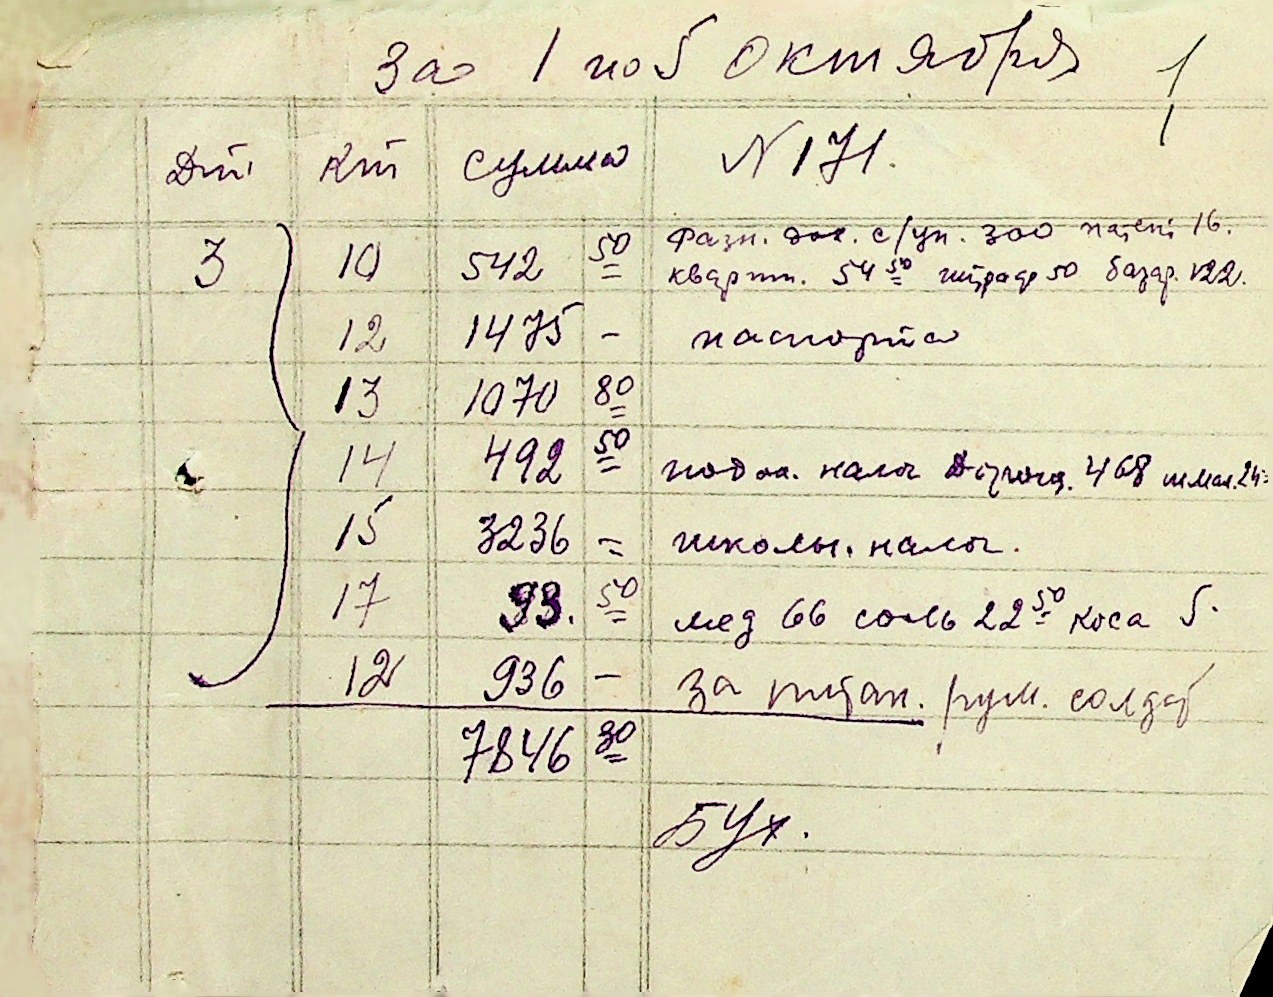 За 1 по 5 Октября
Дт Кт сумма N 171.
3 10 542 50 Разн. дох. с/уп. 300 патент 16.
кварт. 54 50 штраф 50 базар. 122.
12 1475 - паспорта
13 1070 80
14 492 50 подох. налог 468 24
15 3236 = школьн. налог.
17 93. 50 мед 66 соль 22 50 коса 5.
12 936 - за питан. рум. солдат
7846 30
Бух.